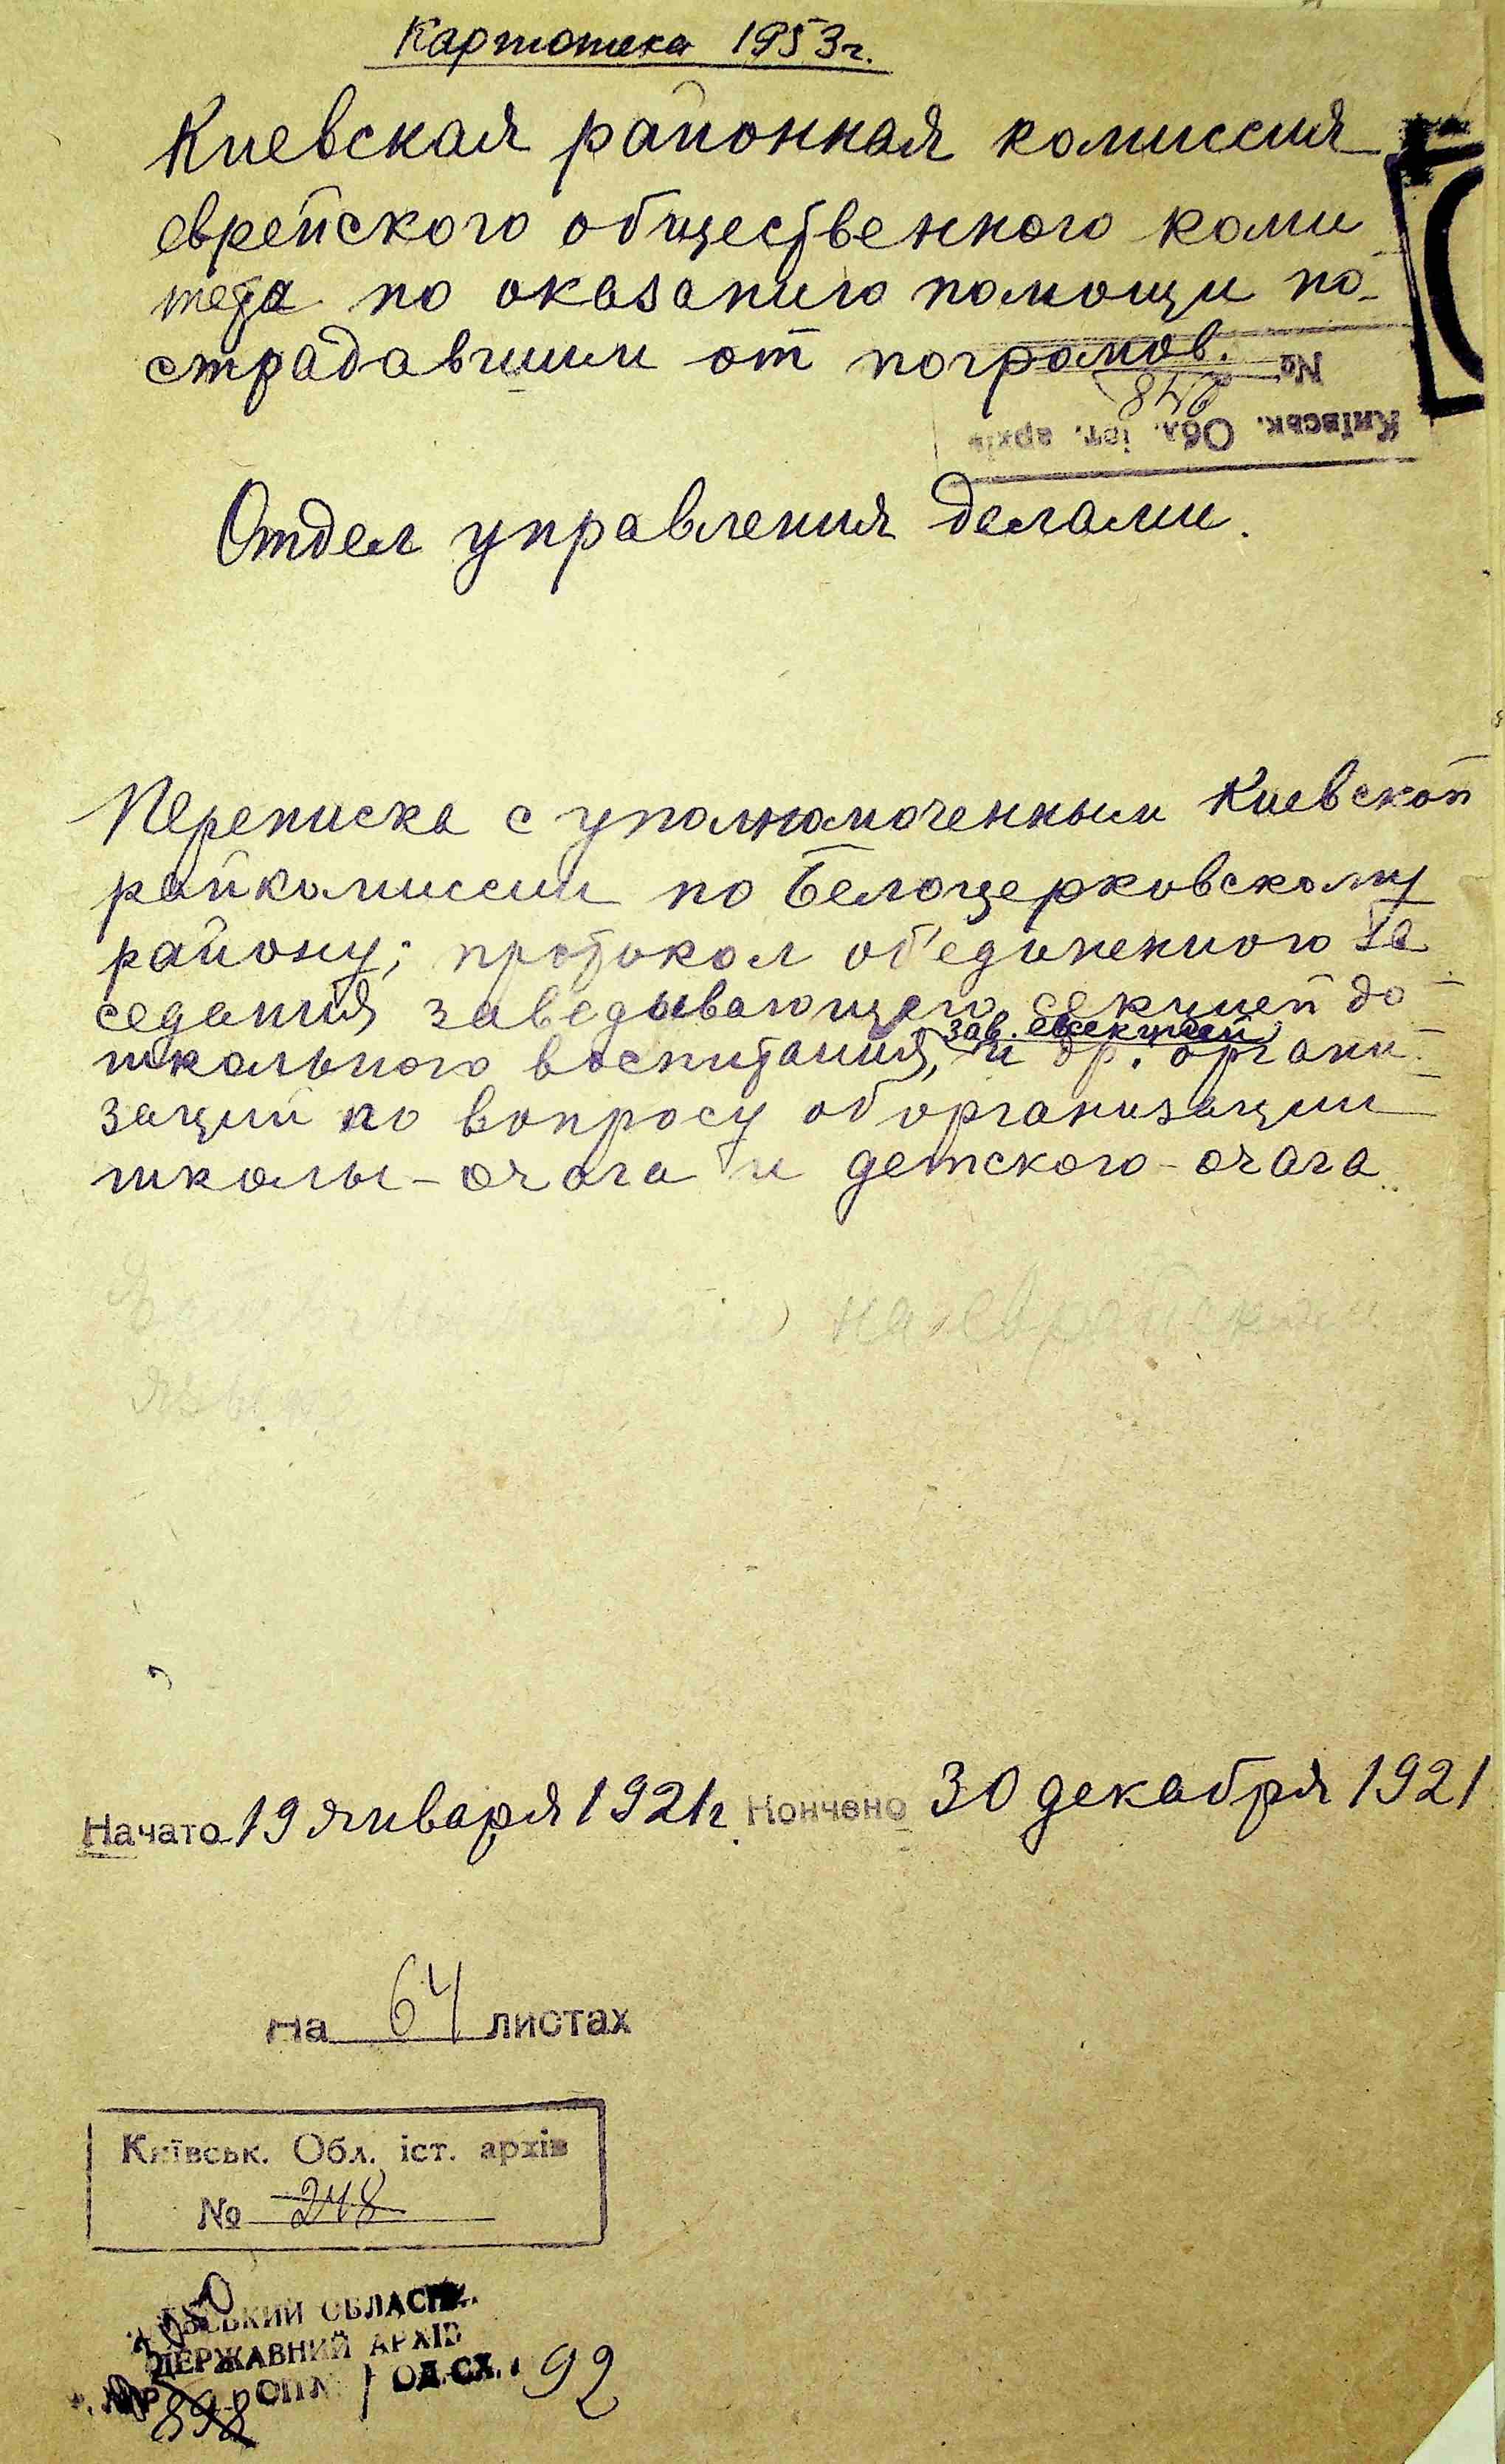 Картотека 1953г.
Киевская районная комиссия
еврейского общественного коми
тета по оказанию помощи по-
страдавшим от погромов.
№ 248
Київськ. Обл. іст. архів
Отдел управления делами.
Переписка с уполномоченным Киевской
райкомиссии по Белоцерковскому
району; протокол об'единенного за
седания заведывающего секцией до-
зав. евсекцией
школьного воспитания, и др. органи-
заций по вопросу об организации
школы-очага и детского-очага
на еврейском
языке
Начато 19 января 1921г. Кончено 30 декабря 1921
на 64 листах
Київськ. Обл. іст. архів
№ 248
ОБЛАСН.
ДЕРЖАВНИЙ АРХІВ
898 ОП № 1 ОД.СХ. 92